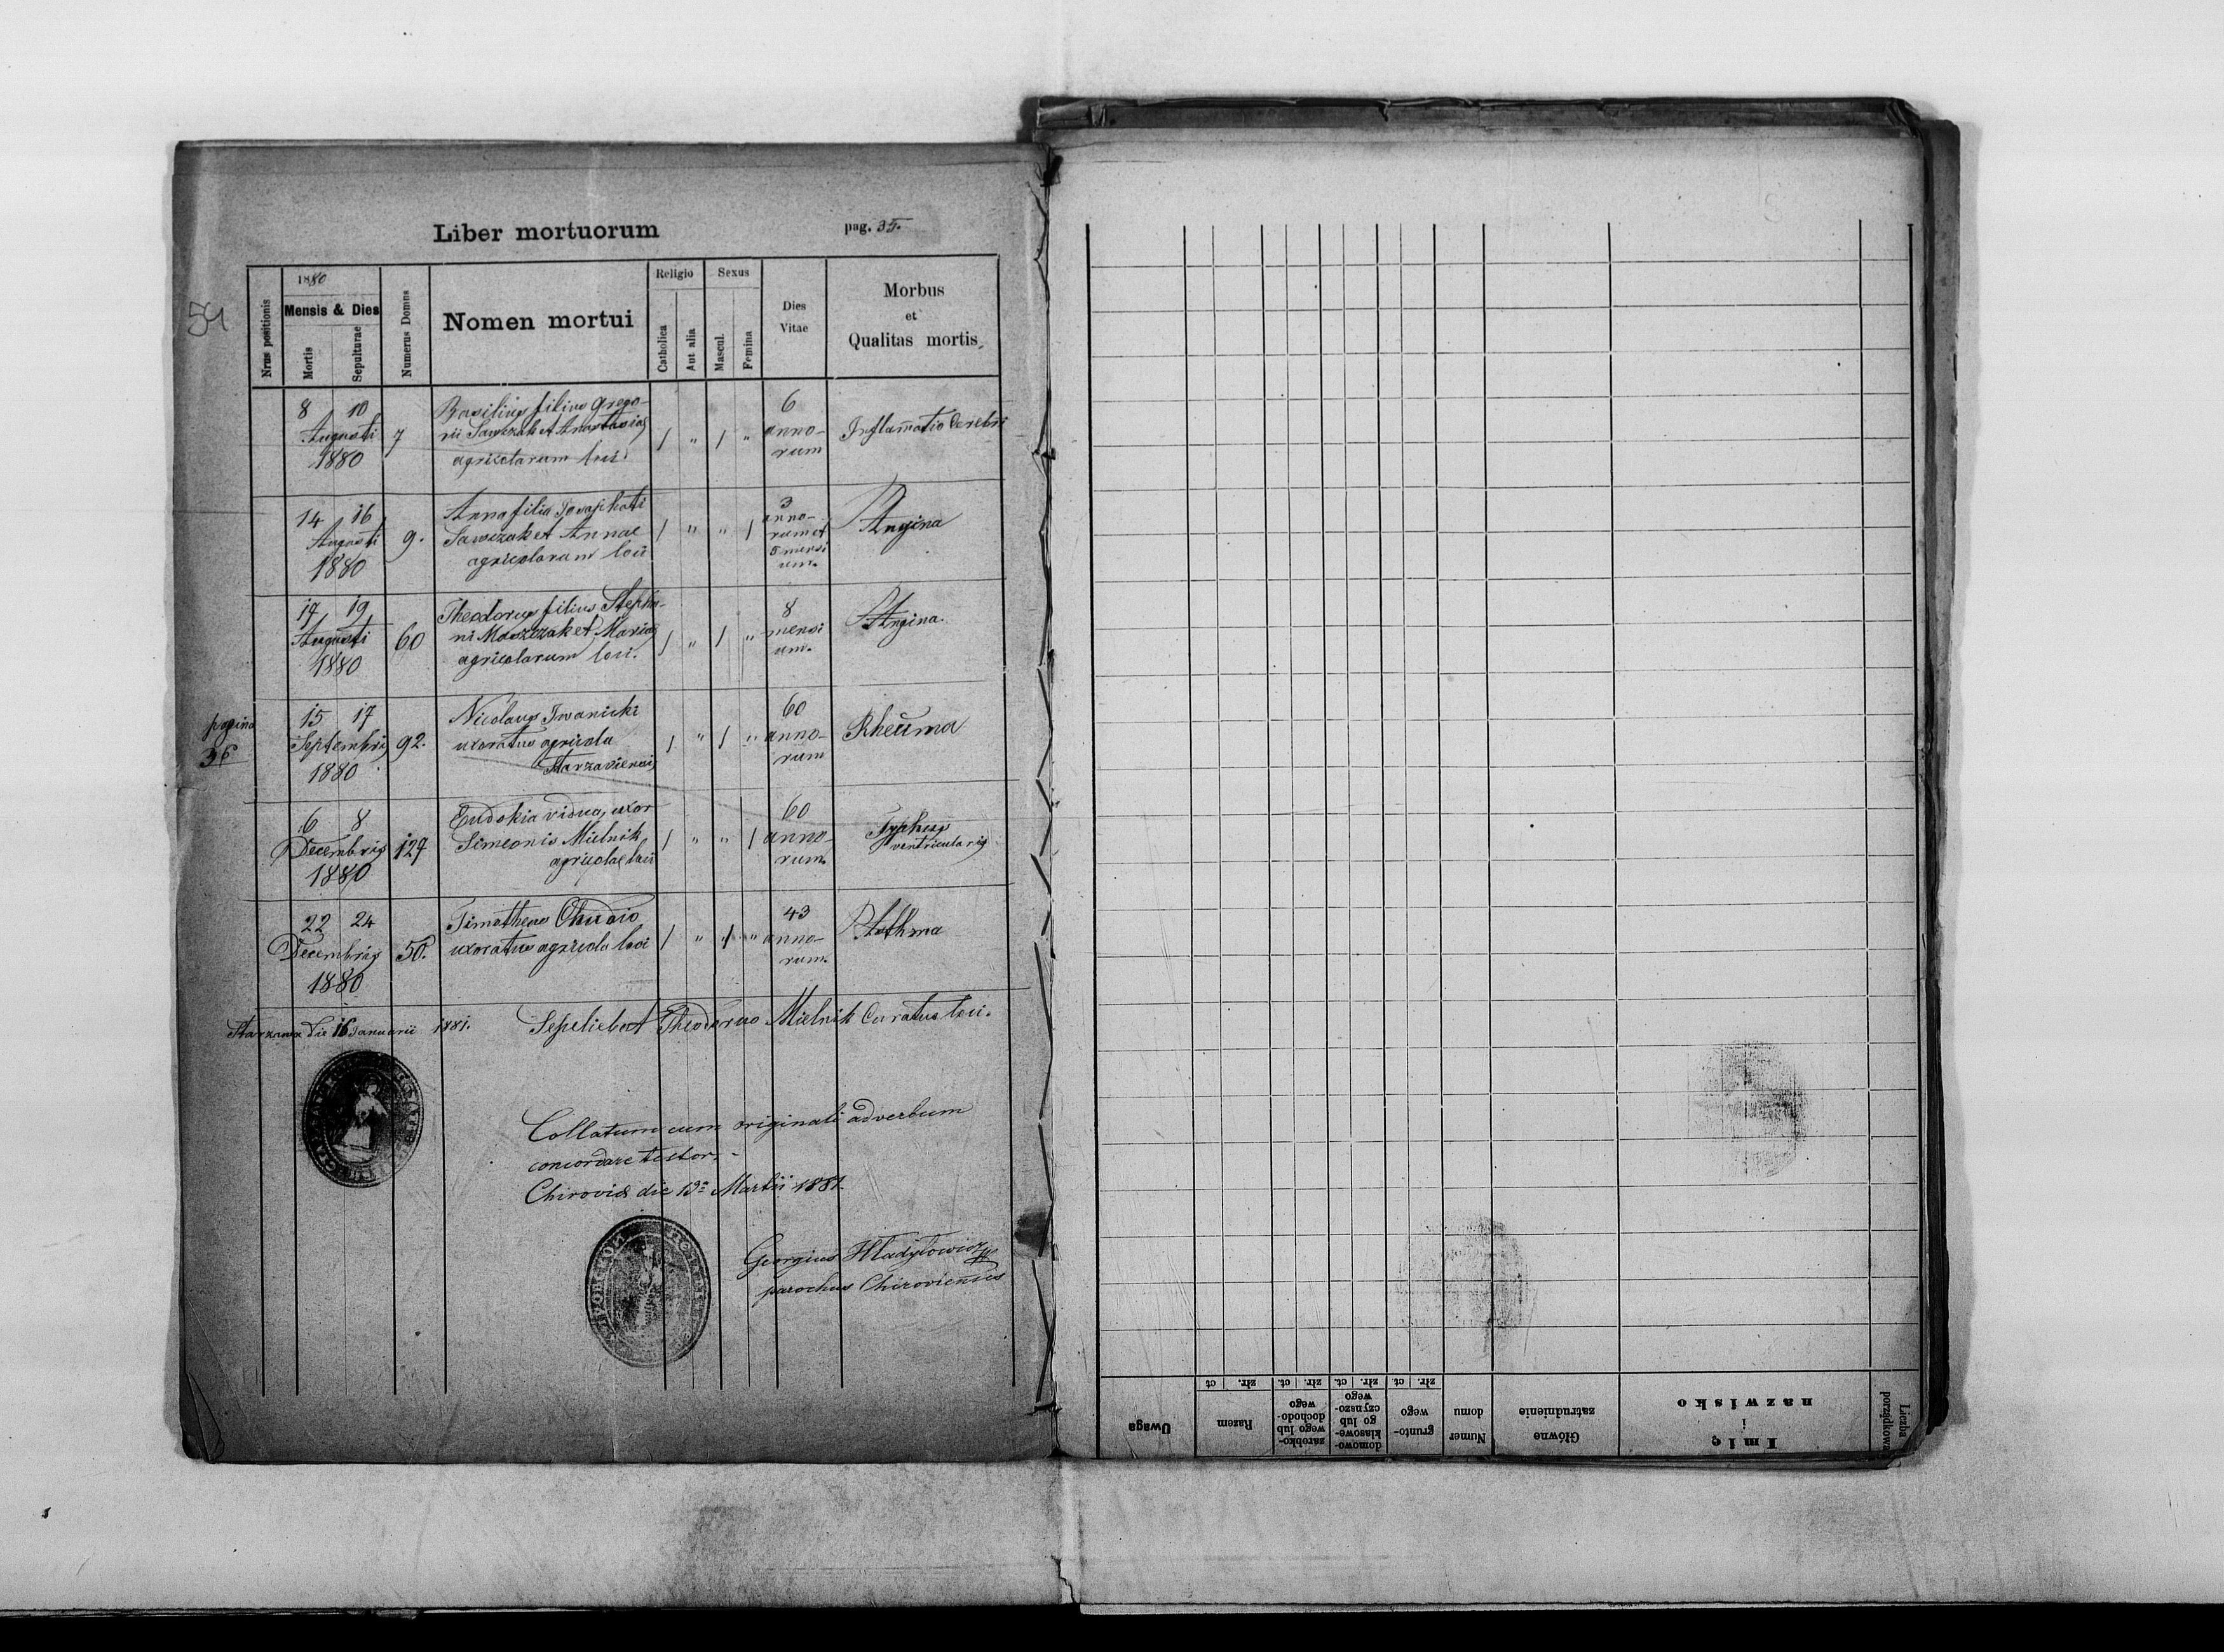 54
Liber mortuorum
pag. 35.
Nrus positionis
1880
Mensis & Dies
Mortis
Sepulturae
Numerus Domus
Nomen mortui
Religio
Catholica
Aut alia
Sexus
Mascul.
Femina
Dies
Vitae
Morbus
et
Qualitas mortis
8 10
Augusti
1880
7
Basilius filius Grego-
rii Sawczak et Anastasiae
agricolarum loci
/ " / "
6
anno-
rum
Inflamatio Cerebri
14 16
Augusti
1880
9.
Anna filia Josaphati
Sawczak et Annae
agricolarum loci
/ " " /
3
anno-
rum et
mensi
um.
Angina
17 19
Augusti
1880
60
Theodorus filius Stepha-
ni Moszczak et Mariae
agricolarum loci.
/ " / "
8
mensi
um.
Angina.
pagina
36
15 17
Septembris
1880
92.
Nicolaus Iwanicki
uxoratus agricola
Starzaviensis
/ " / "
60
anno-
rum
Rheuma
6 8
Decembris
1880
127
Eudokia vidua, uxor
Simeonis Mielnik,
agricolae loci
/ " " /
60
anno-
rum.
Typhus
ventricularis
22 24
Decembris
1880
50.
Timotheus
uxoratus agricola loci
/ " / "
43
anno-
rum.
Asthma
Starzawa die 16 Januarii 1881.
Sepeliebat Theodorus Mielnik Curatus loci.
Collatum cum originali ad verbum
concordare testor. -
Chirovia die Martii 1881
Georgius Hladyłowicz
parochus Chiroviensis
Liczba
porządkowa
Imię
i
nazwisko
Główne
zatrudnienie
Numer
domu
grunto-
wego
złr. ct.
domowo-
klasowe-
go lub
czynszo-
wego
złr. ct.
zarobko-
wego lub
dochodo-
wego
złr. ct.
Razem
złr. ct
Uwaga